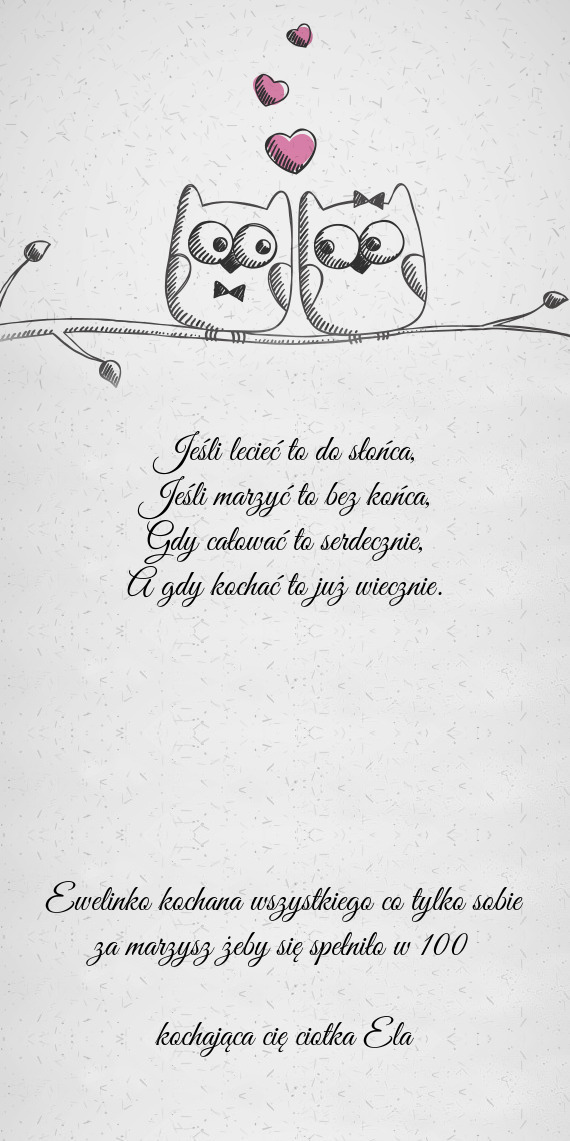 Jeśli lecieć to do słońca,
Jeśli marzyć to bez końca,
Gdy całować to serdecznie,
A gdy kochać to już wiecznie.
Ewelinko kochana wszystkiego co tylko sobie
za marzysz żeby się spełniło w 100
kochająca cię ciotka Ela